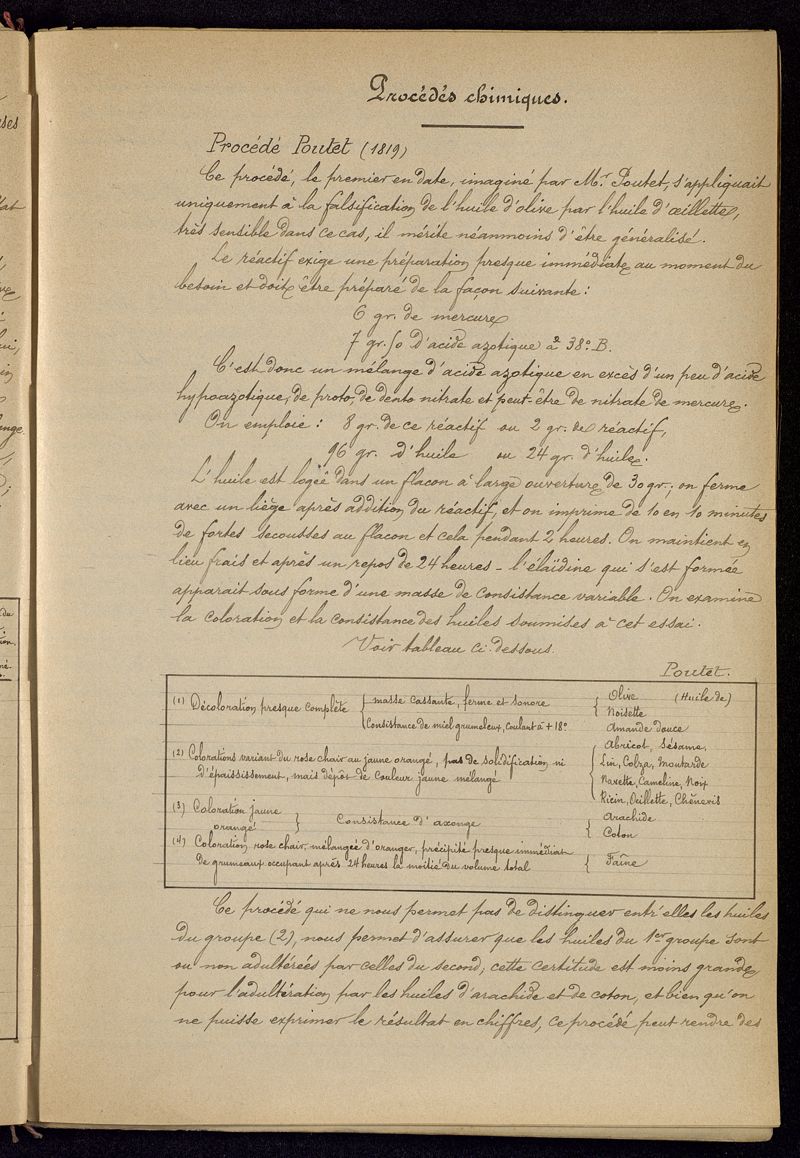 Procédés chimiques.
Procédé Poutet (1819)
Ce procédé, le premier en date, imaginé par Mr Poutet, s'appliquait
uniquement à la falsification de l'huile d'olive par l'huile d'œillette,
très sensible dans ce cas, il mérite néanmoins d'être généralisé.
Le réactif exige une préparation presque immédiate au moment du
besoin et doit être préparé de la façon suivante :
6 gr. de mercure
7 gr. 50 d'acide azotique à 38° B.
C'est donc un mélange d'acide azotique en excès d'un peu d'acide
hypoazotique, de proto, de deuto nitrate et peut-être de nitrate de mercure.
On emploie : 8 gr. de ce réactif ou 2 gr. de réactif,
96 gr. d'huile ou 24 gr. d'huile.
L'huile est logée dans un flacon à large ouverture de 30 gr.; on ferme
avec un liège après addition du réactif, et on imprime de 10 en 10 minutes
de fortes secousses au flacon et cela pendant 2 heures. On maintient en
lieu frais et après un repos de 24 heures - l'élaïdine qui s'est formée
apparait sous forme d'une masse de consistance variable. On examine
la coloration et la consistance des huiles soumises à cet essai.
Voir tableau ci-dessous.
Poutet.
(1) Décoloration presque complète { masse cassante, ferme et sonore { Olive (Huile de)
Noisette
Consistance de miel grumeleux, coulant à + 18° Amande douce
(2) Colorations variant du rose chair au jaune orangé, pas de solidification ni
d'épaississement, mais dépôt de couleur jaune mélangé
{ Abricot, Sésame,
Lin, Colza, Moutarde
Navette, Cameline, Noix
Ricin, Œillette, Chènevis
(3) Coloration jaune
orangé } Consistance d'axonge { Arachide
Coton
(4) Coloration rose chair, mélangée d'oranger, précipité presque immédiat
de grumeaux occupant après 24 heures la moitié du volume total { Faîne
Ce procédé qui ne nous permet pas de distinguer entr'elles les huiles
du groupe (2), nous permet d'assurer que les huiles du 1er groupe sont
ou non adultérées par celles du second, cette certitude est moins grande
pour l'adultération par les huiles d'arachide et de coton, et bien qu'on
ne puisse exprimer le résultat en chiffres, ce procédé peut rendre des